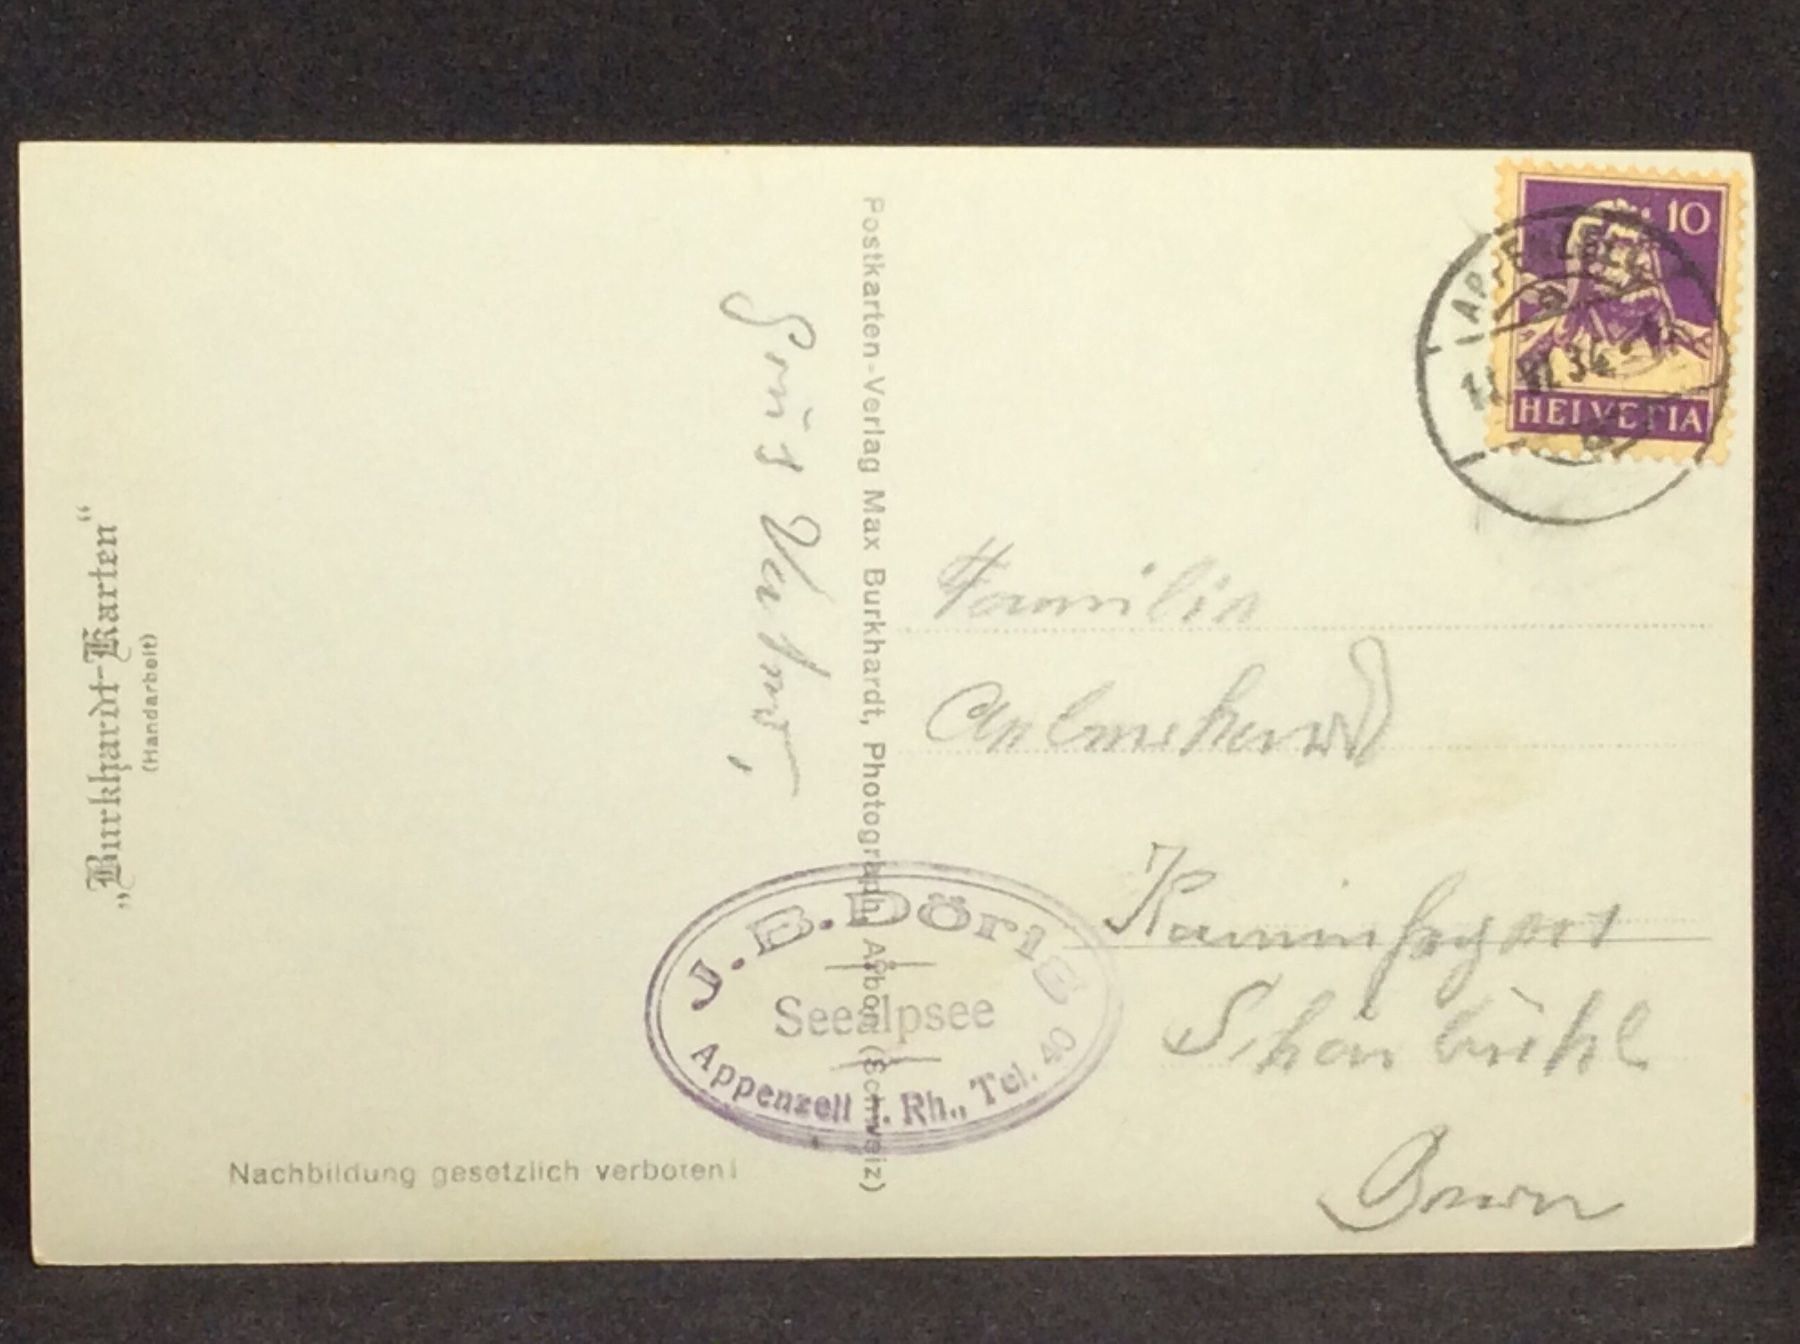 „Burkhardt-Karten“
(Handarbeit)
Nachbildung gesetzlich verboten!
Gruss Vater,
Postkarten-Verlag Max Burkhardt, Photograph, Arbon (Schweiz)
J. B. Dörig
Seealpsee
Appenzell i. Rh., Tel. 40
10
HELVETIA
APPENZELL
VI. 34
Familie
Kaminfeger
Schönbühl
Bern